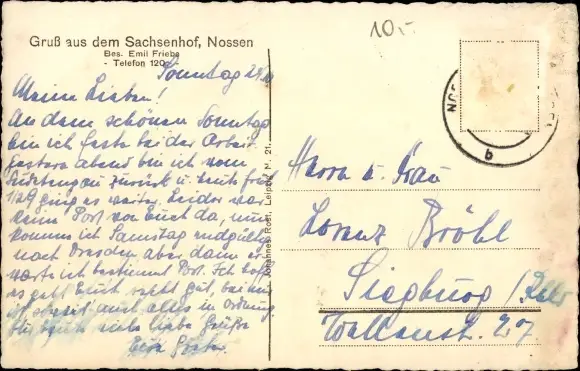 10.-
Gruß aus dem Sachsenhof, Nossen
Bes. Emil Friebe
- Telefon 120 -
Sonntag
Meine Lieben!
An dem schönen Sonntag
bin ich feste bei der Arbeit.
gestern abend bin ich vom
zurück u. heute früh
1/2 9 ging es weiter. Leider war
keine Post von Euch da, nun
komme ich Samstag endgültig
nach Dresden, aber dann er-
warte ich bestimmt Post. Ich hoffe
es geht Euch recht gut, bei mir
ist soweit auch alles in Ordnung.
Für heute liebe Grüße
Johannes Rost, Leipzig M. 21.
NO
b
Herrn u. Frau
Lorenz Bröhl
Siegburg
27